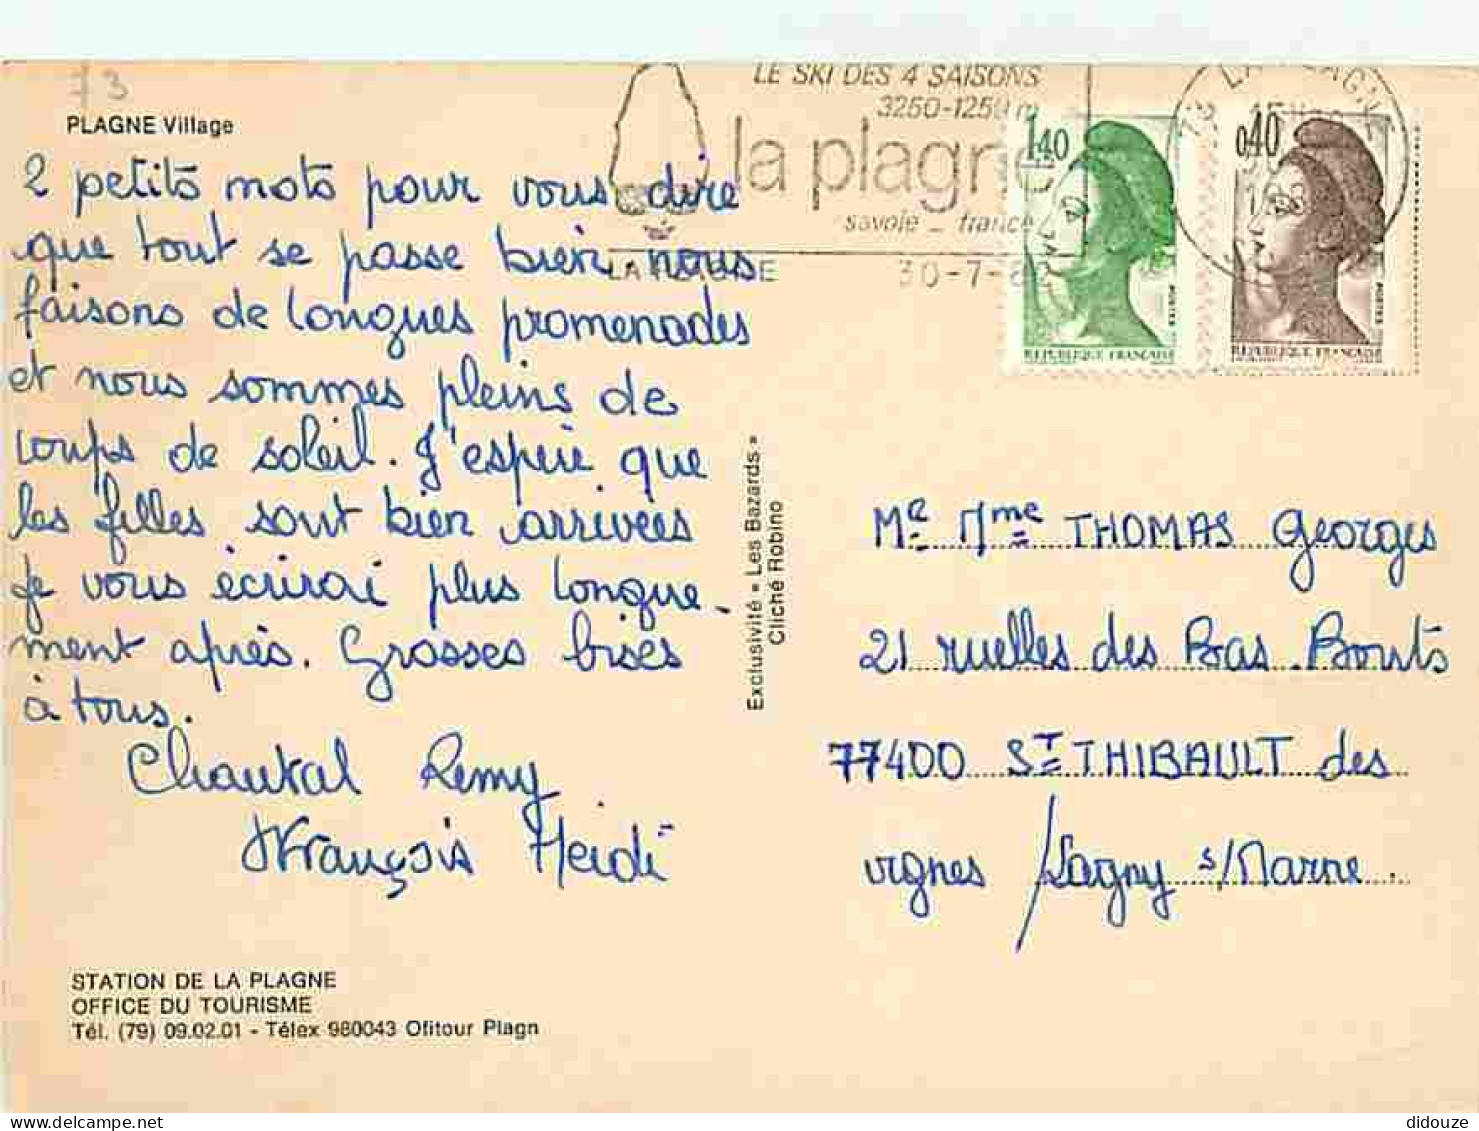 73
PLAGNE Village
2 petits mots pour vous dire
que tout se passe bien, nous
faisons de longues promenades
et nous sommes pleins de
coups de soleil. J'espère que
les filles sont bien arrivées
Je vous écrirai plus longue-
ment après. Grosses bises
à tous.
Chantal Remy
François Heidi
STATION DE LA PLAGNE
OFFICE DU TOURISME
Tél. (79) 09.02.01 - Télex 980043 Ofitour Plagn
Exclusivité « Les Bazards »
Cliché Robino
LE SKI DES 4 SAISONS
3250-1250 m
la plagne
savoie _ france
LA PLAGNE
30-7-8
1,40
REPUBLIQUE FRANÇAISE
POSTES
0,40
REPUBLIQUE FRANÇAISE
POSTES
73 LA PLAGNE
Mr Mme THOMAS Georges
21 ruelles des Bas Bouts
77400 ST THIBAULT des
vignes / Lagny s/Marne.
didouze